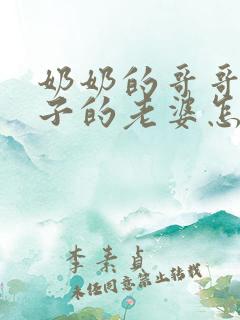 奶奶的哥哥
子的老婆怎
李素贞
未经同意禁止转载